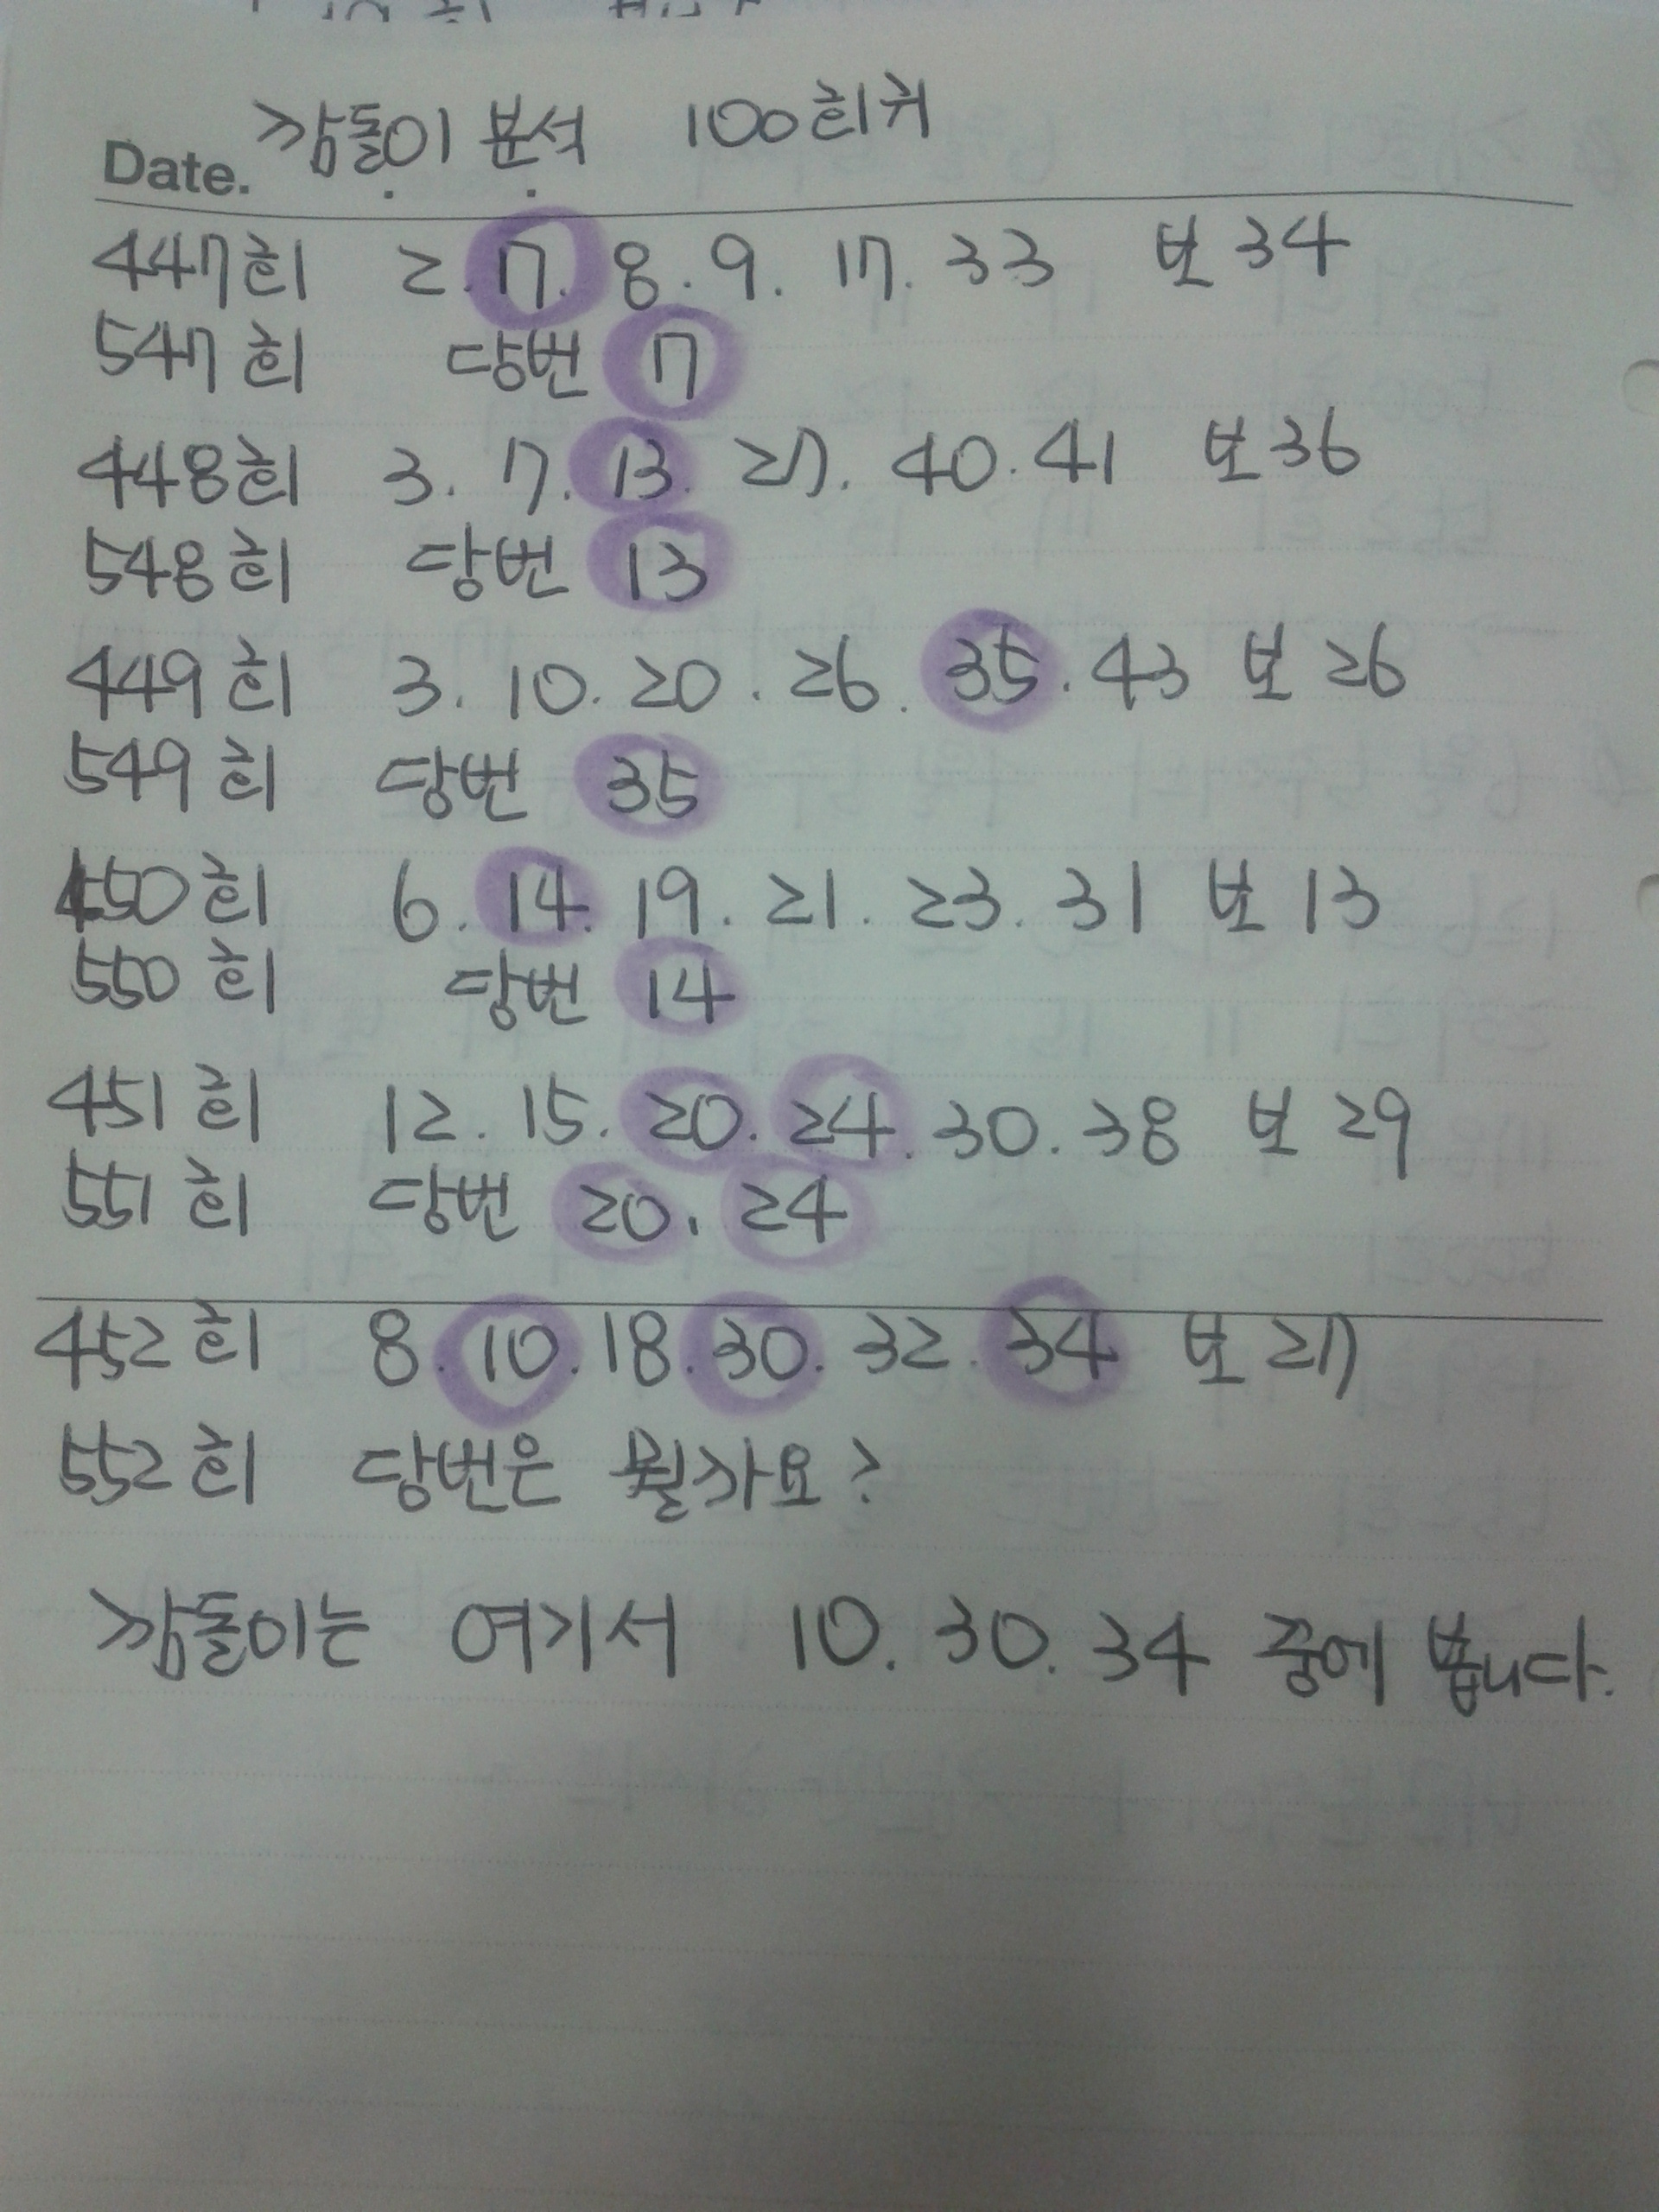 깜돌이 분석 100회귀
Date.
447회 2. 7. 8. 9. 17. 33 보 34
547회 당번 7
448회 3. 7. 13. 27. 40. 41 보 36
548회 당번 13
449회 3. 10. 20. 26. 35. 43 보 26
549회 당번 35
450회 6. 14. 19. 21. 23. 31 보 13
550회 당번 14
451회 12. 15. 20. 24. 30. 38 보 29
551회 당번 20. 24
452회 8. 10. 18. 30. 32. 34 보 27
552회 당번은 뭘까요?
깜돌이는 여기서 10. 30. 34 중에 봅니다.